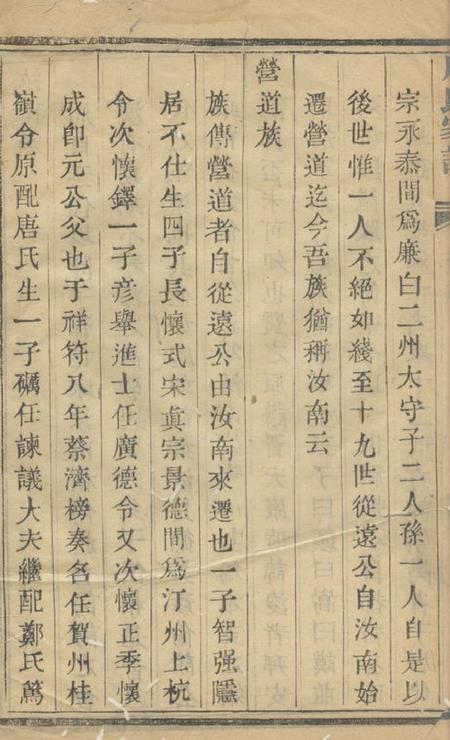 宗永泰間爲廉白二州太守子二人孫一人自是以
後世惟一人不絕如綫至十九世從遠公自汝南始
遷營道迄今吾族猶稱汝南云
營道族
族傳營道者自從遠公由汝南來遷也一子智强隱
居不仕生四子長懷式宋眞宗景德間爲汀州上杭
令次懷鐸一子彦舉進士任廣德令又次懷正季懷
成卽元公父也于祥符八年蔡濟榜奏名任賀州桂
嶺令原配唐氏生一子礪任諫議大夫繼配鄭氏篤